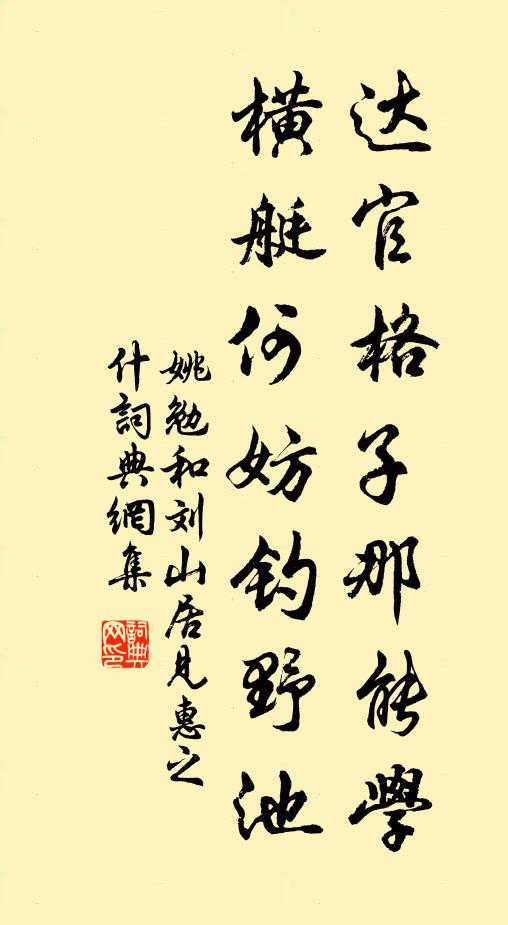 达官格子那能學
横艇何妨钓野池
姚勉和刘山居見惠之
什詞典網集
詞典
网印